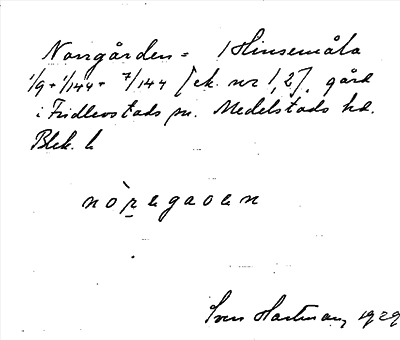 Norrgården = 1 Hinsemåla
1/9 + 1/144 = 7/144 [ek. nr 1,2], gård
i Fridlevstads sn. Medelstads hd.
Blek. l
nòregaɷen
Sven Hartman, 1929